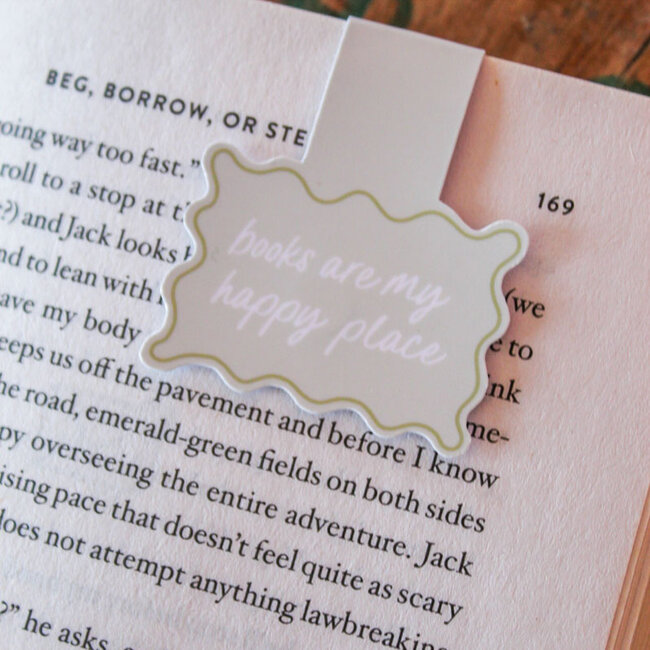 BEG, BORROW, OR STE
169
oing way too fast."
roll to a stop at
?) and Jack looks
nd to lean with
(we
ave my body
e to
eeps us off the pavement and before I know
ink
he road, emerald-green fields on both sides
me-
py overseeing the entire adventure. Jack
ising pace that doesn't feel quite as scary
does not attempt anything lawbreaking
?" he asks,
books are my
happy place